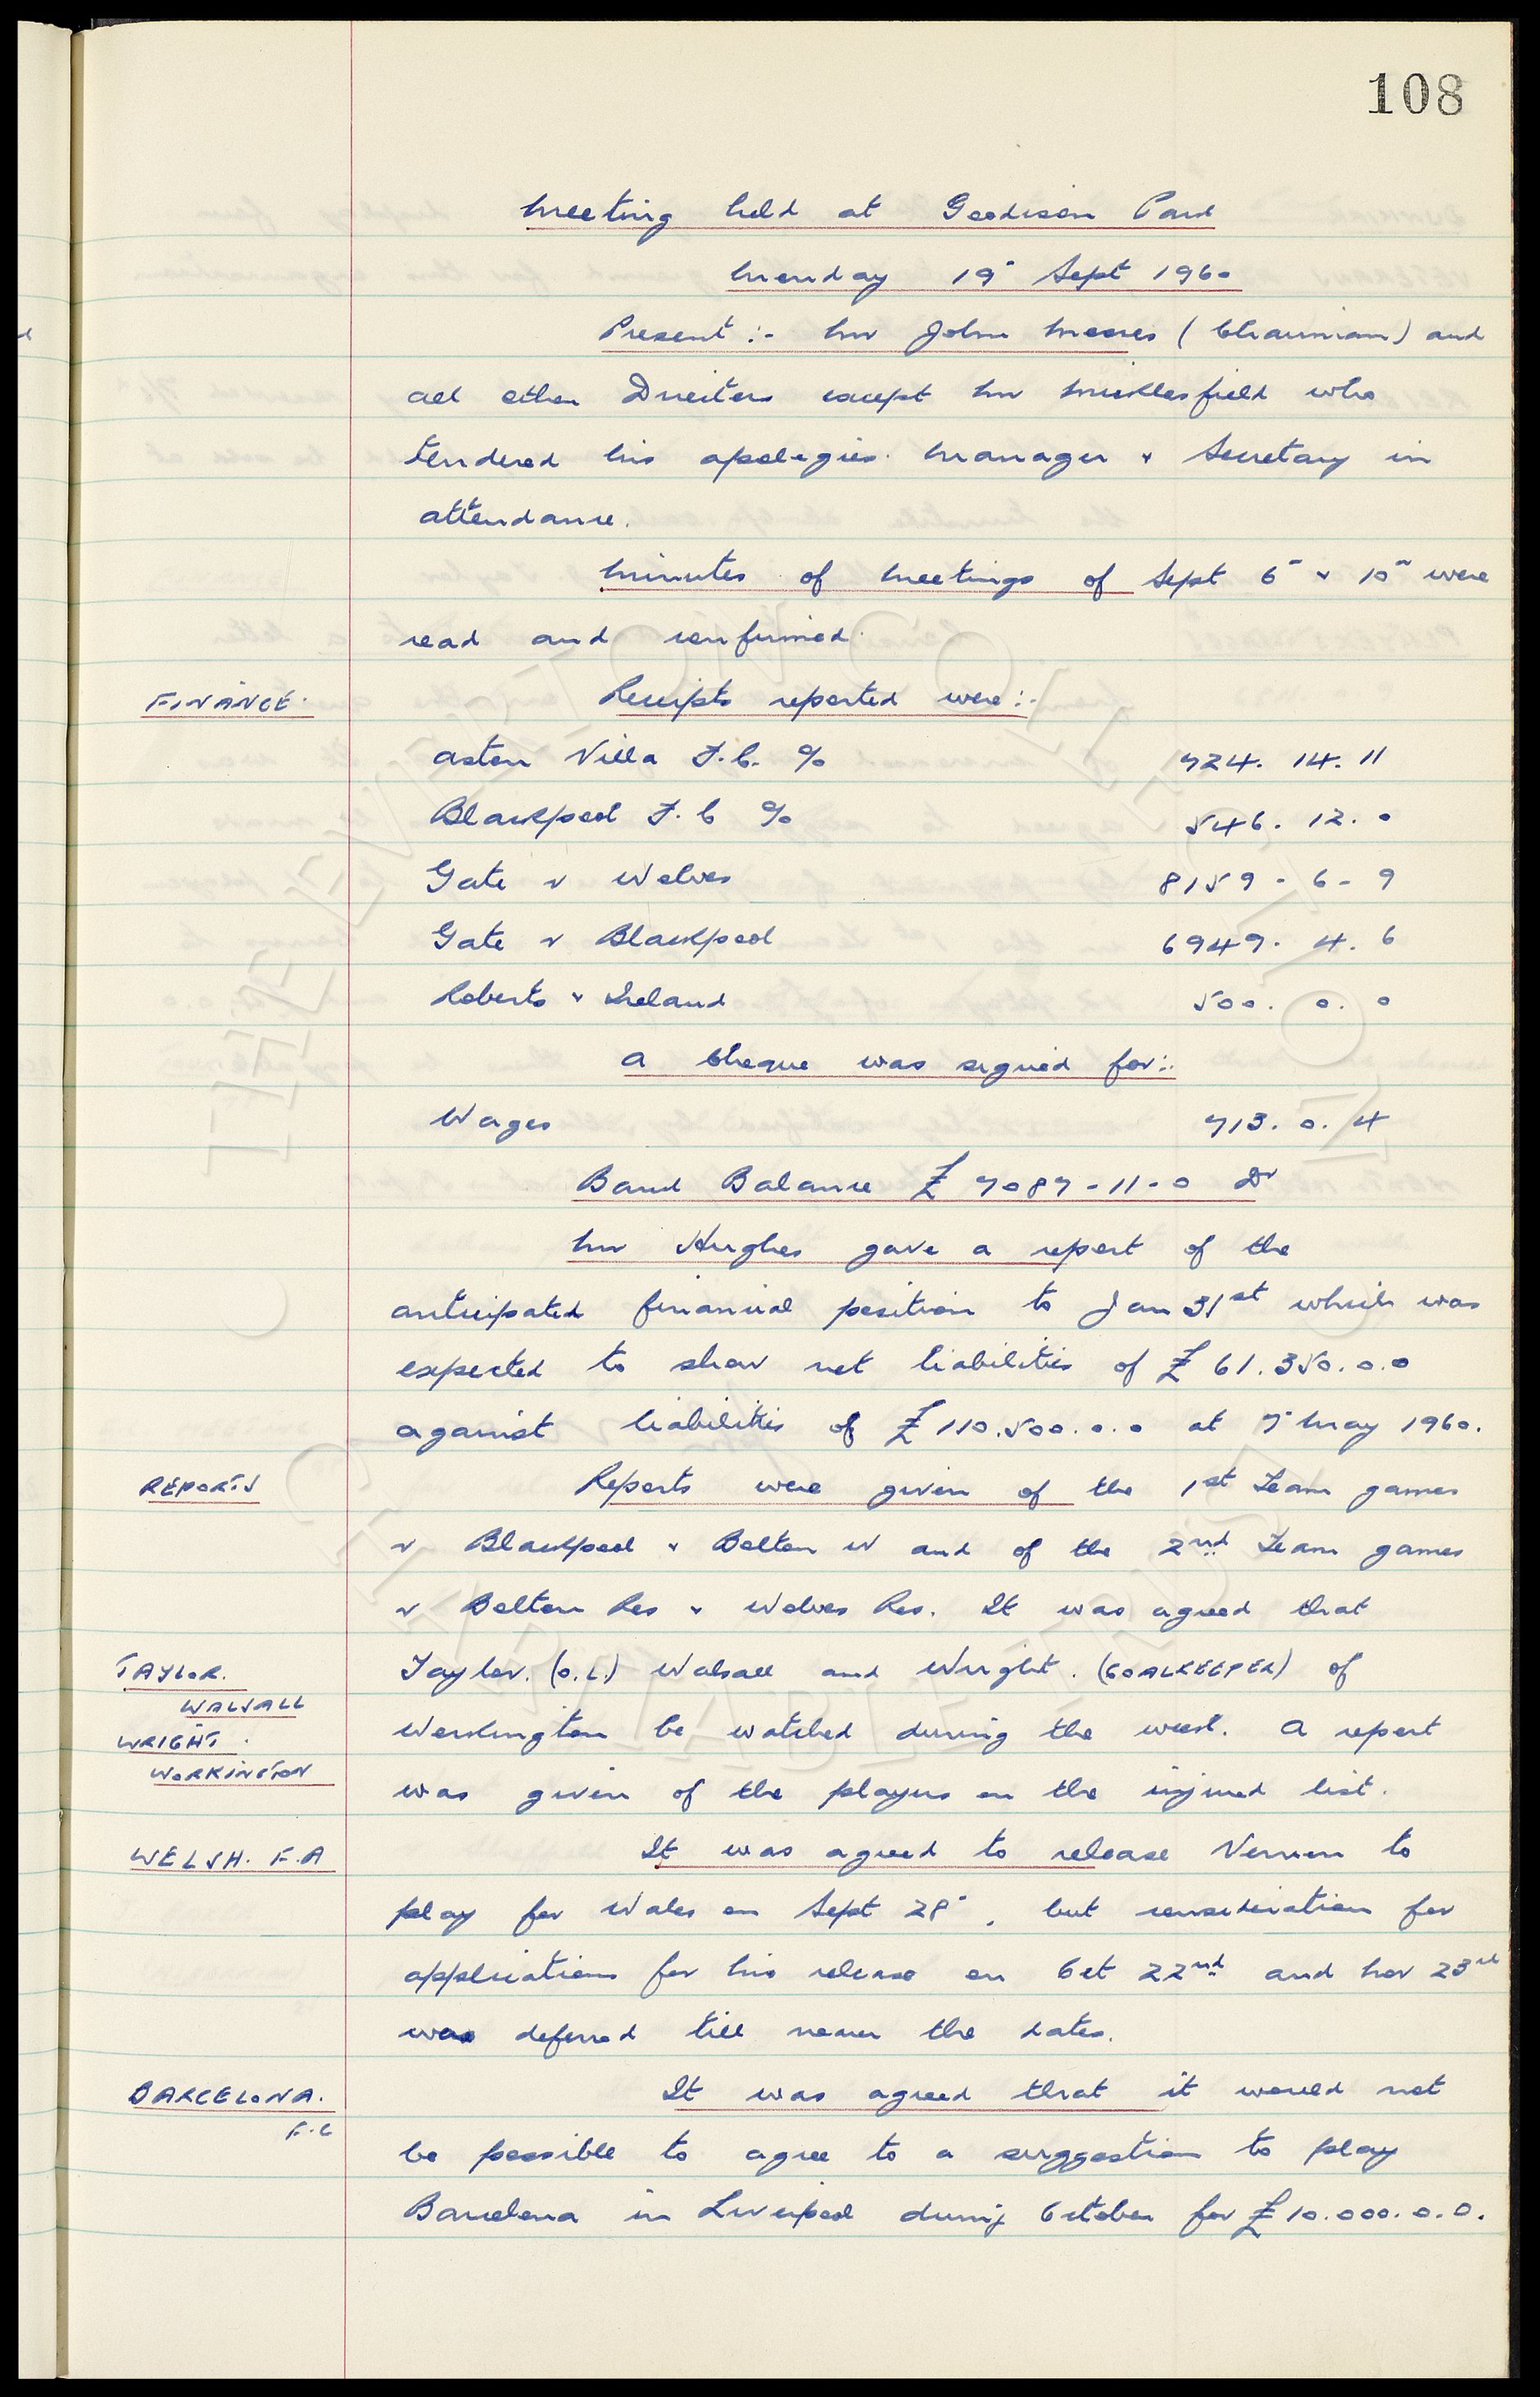 108
Meeting held at Goodison Park
Monday 19" Sept 1960
Present :- Mr John Moores (Chairman) and
all other Directors except Mr Micklesfield who
tendered his apologies. Manager & Secretary in
attendance.
Minutes of meetings of Sept 6" & 10" were
read and confirmed.
FINANCE. Receipts reported were :-
Aston Villa F.C. % 724. 14. 11
Blackpool F.C % 546. 12. 0
Gate v Wolves 8159 - 6 - 9
Gate v Blackpool 6949. 4. 6
Roberts & Ireland 500. 0. 0
A Cheque was signed for :-
Wages 713. 0. 4
Bank Balance £ 7087 - 11 - 0 Dr
Mr Hughes gave a report of the
anticipated financial position to Jan 31st which was
expected to show net liabilities of £ 61.350.0.0
against liabilities of £ 110.500.0.0 at 7" May 1960.
REPORTS Reports were given of the 1st Team games
v Blackpool & Bolton W and of the 2nd Team games
v Bolton Res & Wolves Res. It was agreed that
TAYLOR. Taylor. (O.L.) Walsall and Wright. (GOALKEEPER) of
WALSALL
WRIGHT. Workington be watched during the week. A report
WORKINGTON
was given of the players on the injured list.
WELSH. F.A It was agreed to release Vernon to
play for Wales on Sept 28", but consideration for
applications for his release on Oct 22nd and Nov 23rd
was deferred till nearer the dates.
BARCELONA. It was agreed that it would not
F.C
be possible to agree to a suggestion to play
Barcelona in Liverpool during October for £ 10.000.0.0.